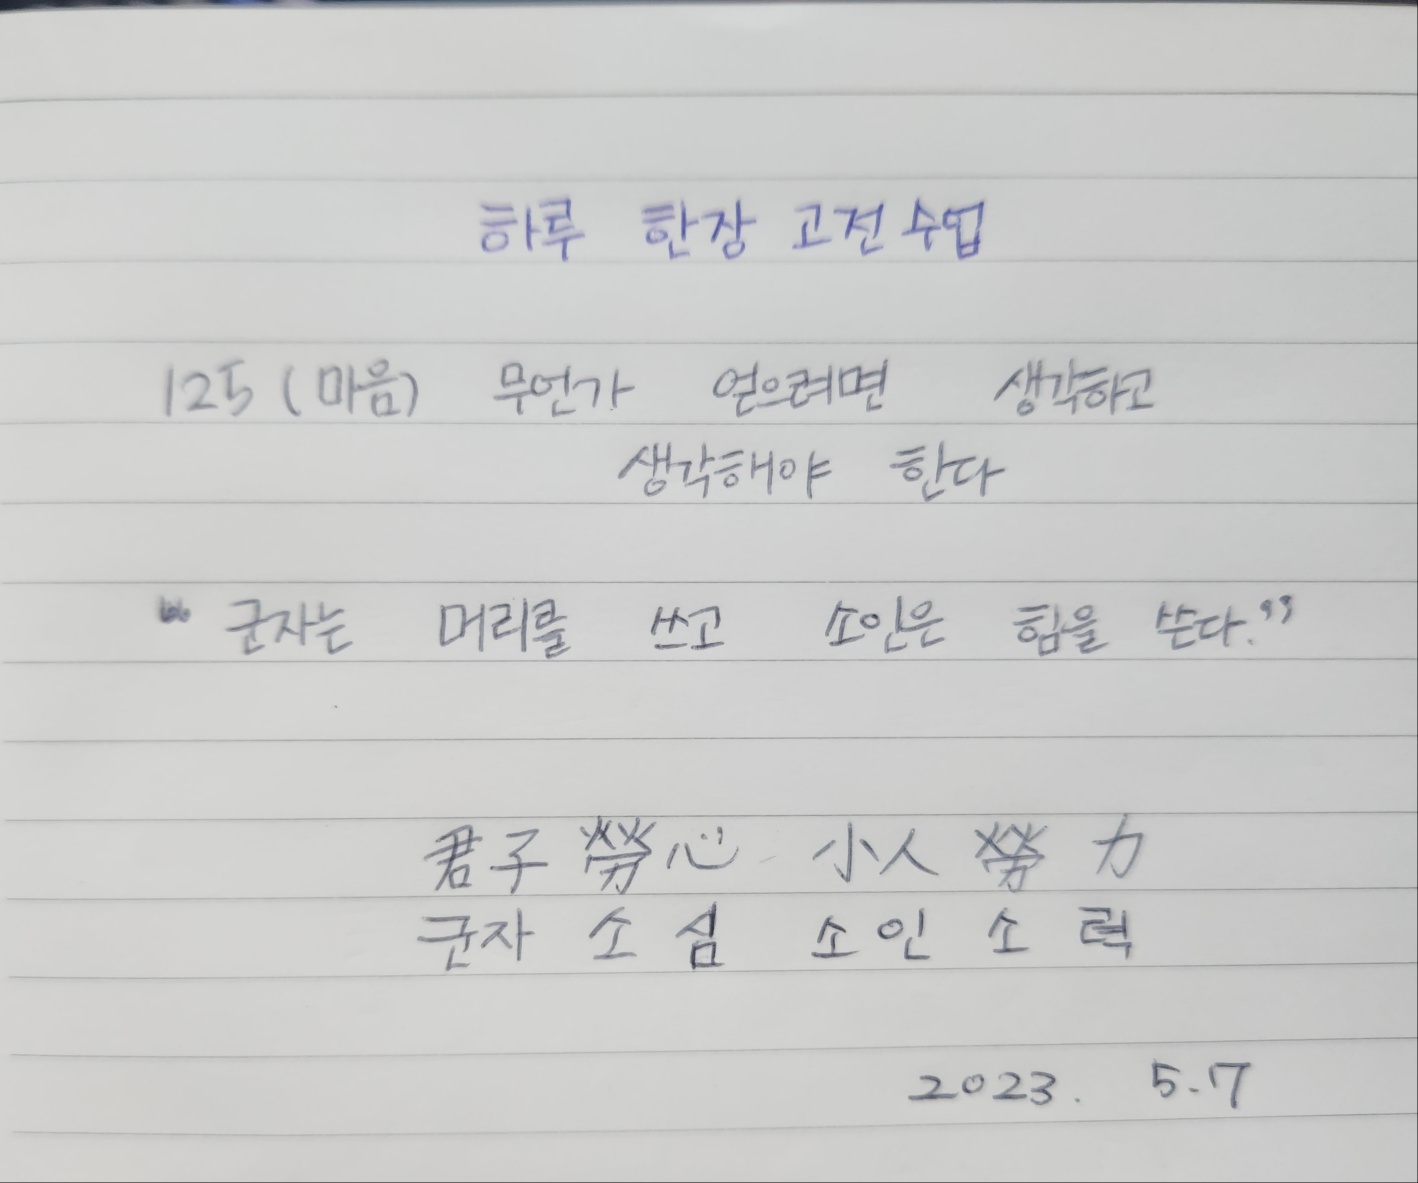 하루 한장 고전수업
125 (마음) 무언가 얻으려면 생각하고
생각해야 한다
“군자는 머리를 쓰고 소인은 힘을 쓴다.”
君子 勞心 小人 勞力
군자 소심 소인 소력
2023. 5.7